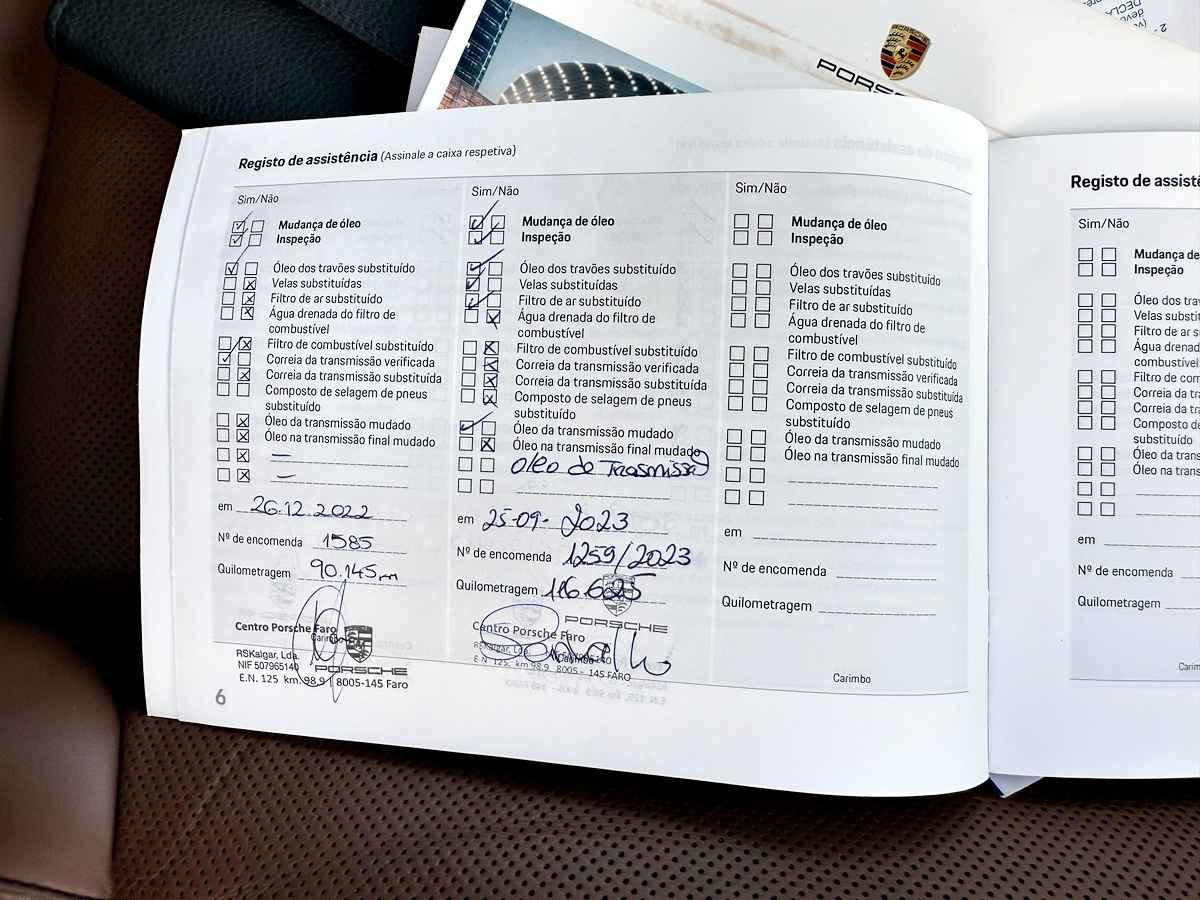 PORSCHE
DECLA
Registo de assistência (Assinale a caixa respetiva)
Sim/Não
Mudança de óleo
Inspeção
Óleo dos travões substituído
Velas substituídas
Filtro de ar substituído
Água drenada do filtro de
combustível
Filtro de combustível substituído
Correia da transmissão verificada
Correia da transmissão substituída
Composto de selagem de pneus
substituído
Óleo da transmissão mudado
Óleo na transmissão final mudado
em 26.12.2022
Nº de encomenda 1585
Quilometragem 90.145
Centro Porsche Faro
Carimbo
RSKalgar, Lda.
NIF 507965140
PORSCHE
E.N. 125 km 98,9 | 8005-145 Faro
6
Sim/Não
Mudança de óleo
Inspeção
Óleo dos travões substituído
Velas substituídas
Filtro de ar substituído
Água drenada do filtro de
combustível
Filtro de combustível substituído
Correia da transmissão verificada
Correia da transmissão substituída
Composto de selagem de pneus
substituído
Óleo da transmissão mudado
Óleo na transmissão final mudado
Óleo de Trasmissão
em 25-09-2023
Nº de encomenda 1259/2023
Quilometragem
PORSCHE
Centro Porsche Faro
RSKalgar, Lda.
Carimbo
E.N. 125, km 98,9 8005 - 145 FARO
Sim/Não
Mudança de óleo
Inspeção
Óleo dos travões substituído
Velas substituídas
Filtro de ar substituído
Água drenada do filtro de
combustível
Filtro de combustível substituído
Correia da transmissão verificada
Correia da transmissão substituída
Composto de selagem de pneus
substituído
Óleo da transmissão mudado
Óleo na transmissão final mudado
em
Nº de encomenda
Quilometragem
Carimbo
Registo de assistê
Sim/Não
Mudança de
Inspeção
Óleo dos trav
Velas substi
Filtro de ar
Água drena
combustível
Filtro de co
Correia da tr
Correia da tr
Composto de
substituído
Óleo da trans
Óleo na trans
em
Nº de encomenda
Quilometragem
Carim